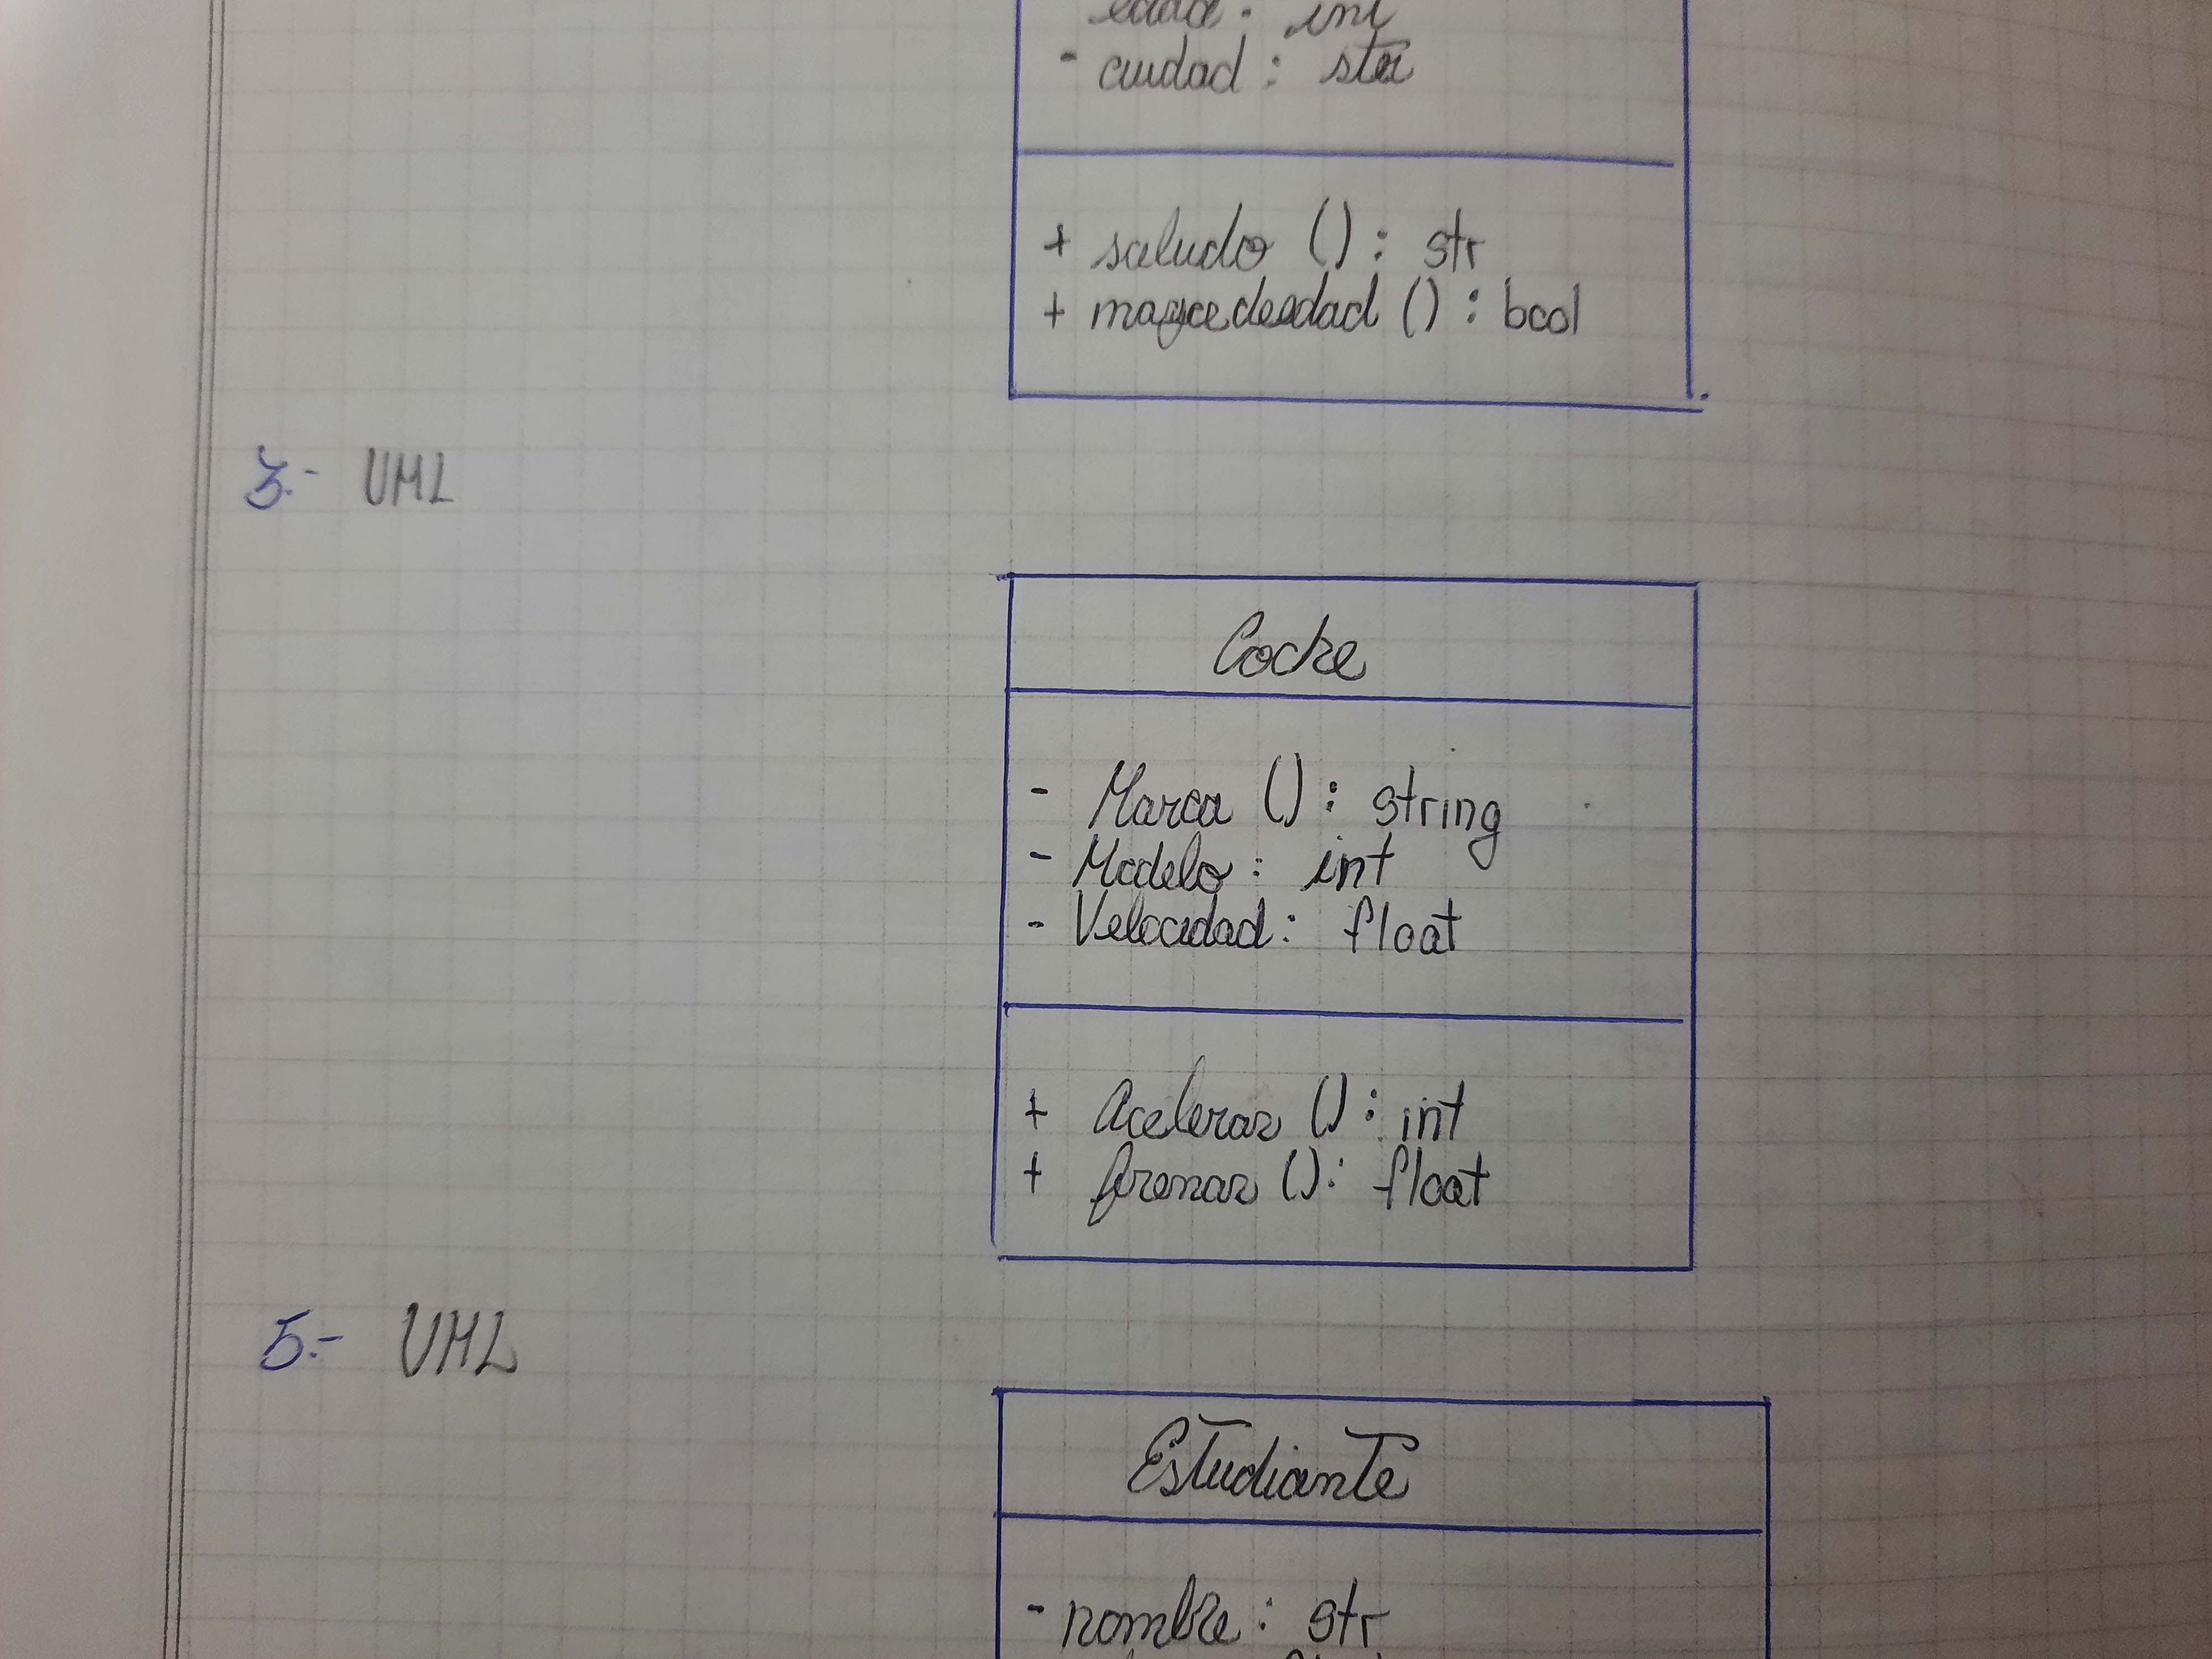 edad : int
- ciudad : str
+ saludo () : str
+ mayordeedad () : bool
3.- UML
Coche
- Marca () : string
- Modelo : int
- Velocidad : float
+ Acelerar () : int
+ frenar () : float
5.- UML
Estudiante
- nombre : str